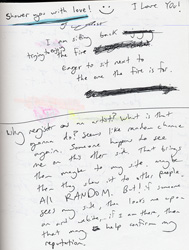 Shower you with love! I Love You!
I am sitting back
the fire
eager to sit next to
the one the fire is for.
Why register as an artist? What is that
gonna do? Seems like random chance
again. Someone happens to see
me on this other site. That brings
them maybe to my site. maybe
then they show it to other people.
All RANDOM. But if someone
sees my side, then looks me upon
on and white, if I am there, then
that may help confirm my
reputation.